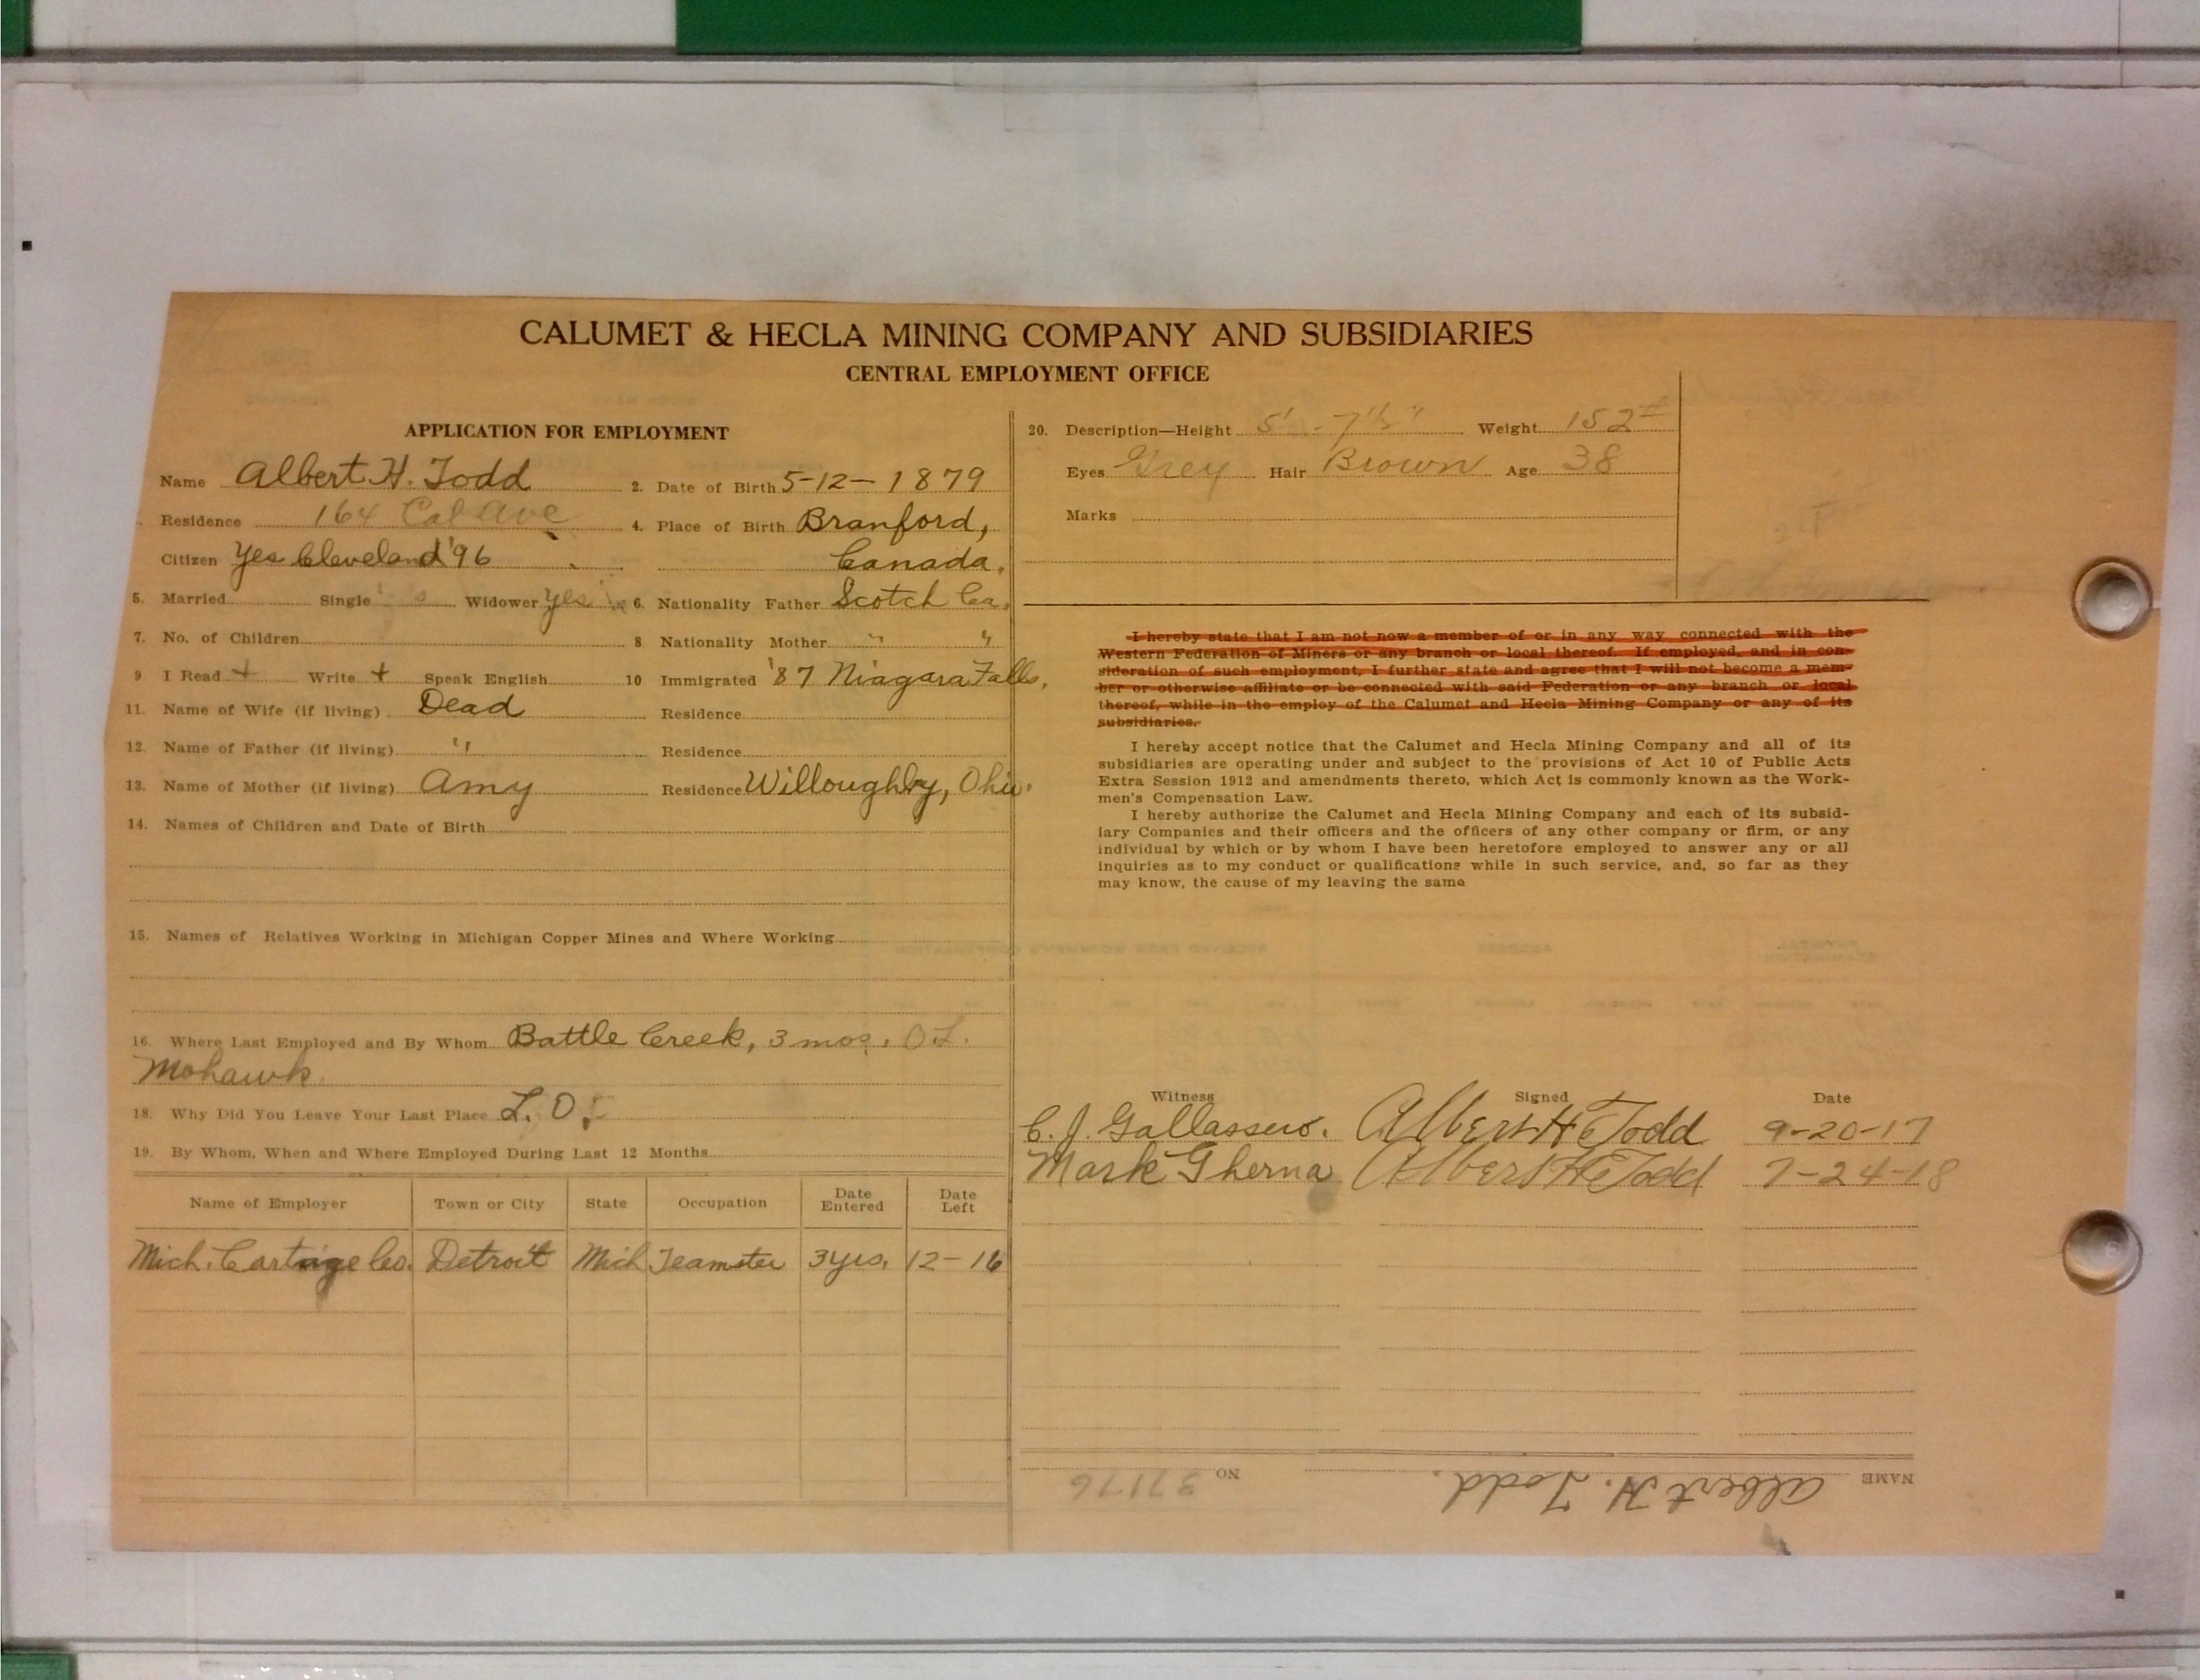 CALUMET & HECLA MINING COMPANY AND SUBSIDIARIES
CENTRAL EMPLOYMENT OFFICE
APPLICATION FOR EMPLOYMENT
Name Albert H. Todd 2. Date of Birth 5-12-1879
Residence 164 Cal Ave 4. Place of Birth Branford,
Citizen Yes Cleveland '96 Canada.
5. Married Single Widower Yes 6. Nationality Father Scotch Ca.
7. No. of Children 8 Nationality Mother " "
9 I Read + Write + Speak English 10 Immigrated '87 Niagara Falls.
11. Name of Wife (if living) Dead Residence
12. Name of Father (if living) " Residence
13. Name of Mother (if living) Amy Residence Willoughby, Ohio.
14. Names of Children and Date of Birth
15. Names of Relatives Working in Michigan Copper Mines and Where Working
16. Where Last Employed and By Whom Battle Creek, 3 mos. O.L.
Mohawk
18. Why Did You Leave Your Last Place L.O.
19. By Whom, When and Where Employed During Last 12 Months
Name of Employer Town or City State Occupation Date Entered Date Left
Mich. Cartage Co. Detroit Mich Teamster 3 yrs. 12-16
20. Description—Height 5' - 7½" Weight 152#
Eyes Grey Hair Brown Age 38
Marks
I hereby state that I am not now a member of or in any way connected with the
Western Federation of Miners or any branch or local thereof. If employed, and in con-
sideration of such employment, I further state and agree that I will not become a mem-
ber or otherwise affiliate or be connected with said Federation or any branch or local
thereof, while in the employ of the Calumet and Hecla Mining Company or any of its
subsidiaries.
I hereby accept notice that the Calumet and Hecla Mining Company and all of its
subsidiaries are operating under and subject to the provisions of Act 10 of Public Acts
Extra Session 1912 and amendments thereto, which Act is commonly known as the Work-
men's Compensation Law.
I hereby authorize the Calumet and Hecla Mining Company and each of its subsid-
iary Companies and their officers and the officers of any other company or firm, or any
individual by which or by whom I have been heretofore employed to answer any or all
inquiries as to my conduct or qualifications while in such service, and, so far as they
may know, the cause of my leaving the same
Witness Signed Date
C. J. Gallassero. Albert H Todd 9-20-17
Mark Gherna Albert H Todd 7-24-18
NAME Albert H. Todd. NO 37176